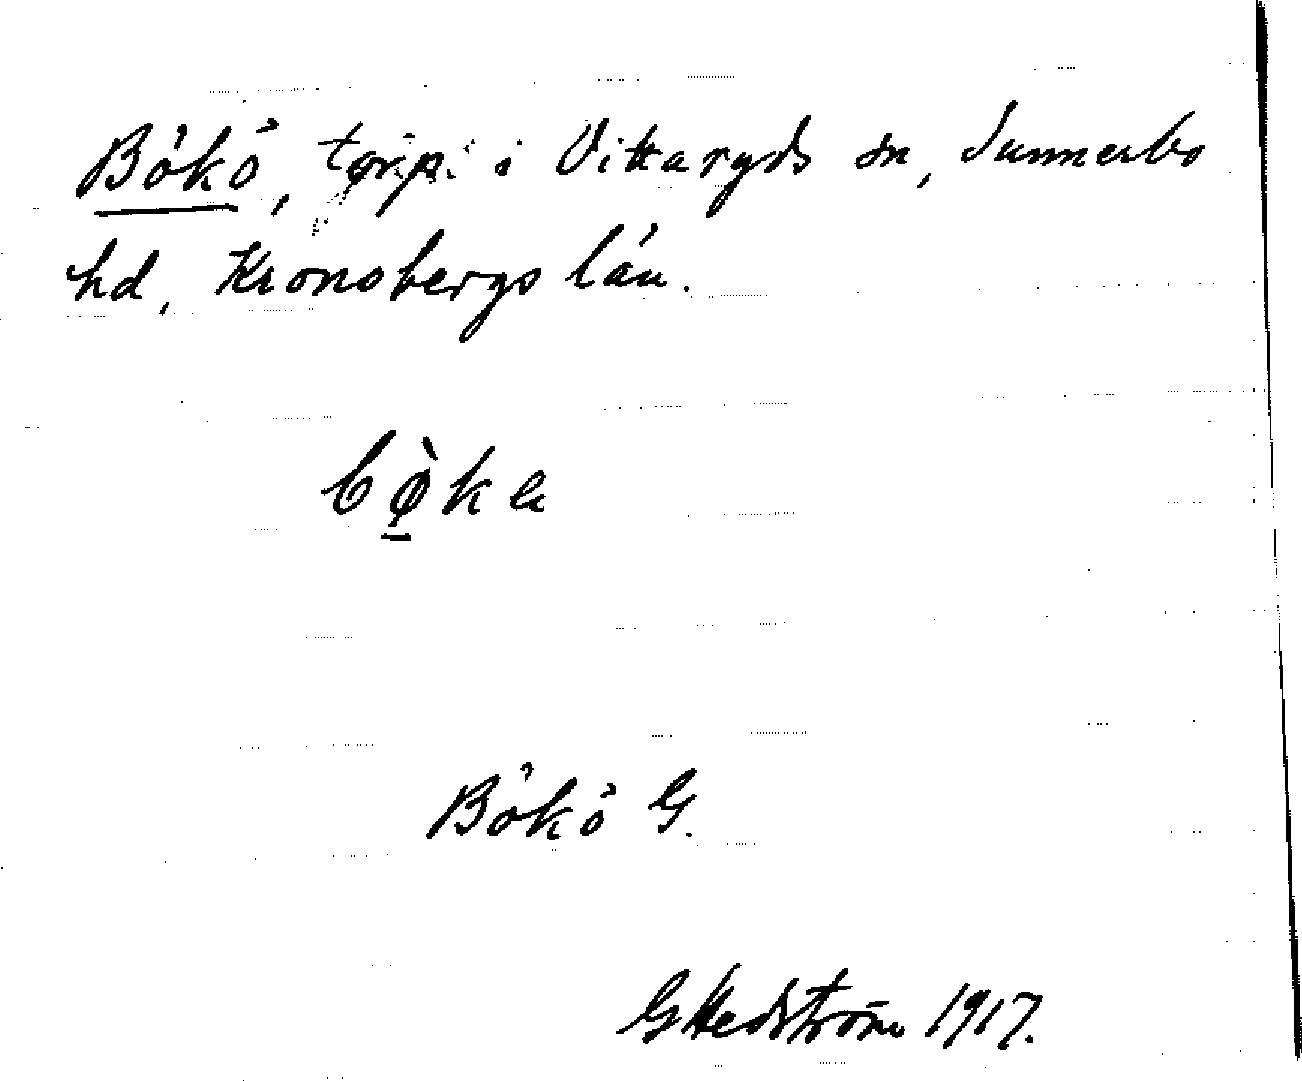 Bökö, torp i Vittaryds sn, Sunnerbo
hd, Kronobergs län.
bø̀kə
Bökö G.
G Hedström 1917.